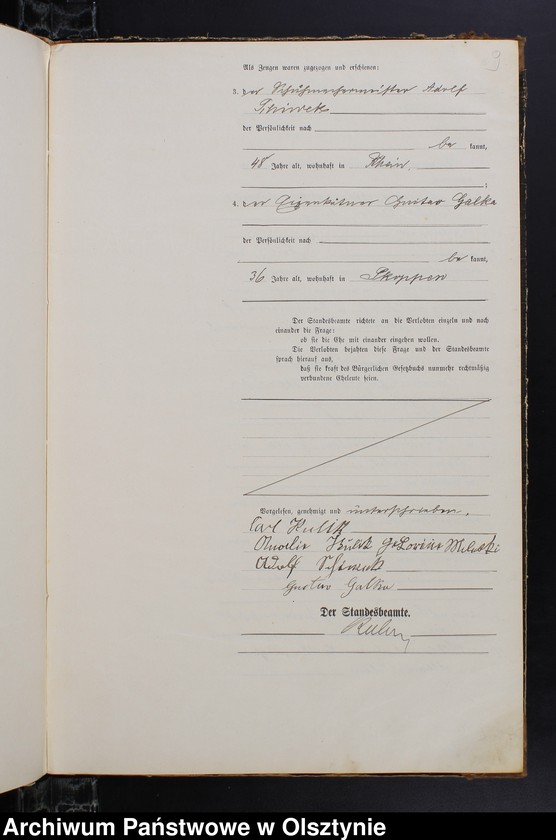 9
Als Zeugen waren zugezogen und erschienen:
3. der Schuhmachermeister Adolf
der Persönlichkeit nach
be kannt,
48 Jahre alt, wohnhaft in Rhein.
;
4. der Eigenkätner Gustav Galka
der Persönlichkeit nach
be kannt,
36 Jahre alt, wohnhaft in Skoppen
Der Standesbeamte richtete an die Verlobten einzeln und nach
einander die Frage:
ob sie die Ehe mit einander eingehen wollen.
Die Verlobten bejahten diese Frage und der Standesbeamte
sprach hierauf aus,
daß sie kraft des Bürgerlichen Gesetzbuchs nunmehr rechtmäßig
verbundene Eheleute seien.
Vorgelesen, genehmigt und unterschrieben.
Carl Kulik
Amalie Kulik
Adolf
Gustav Galka
Der Standesbeamte.
Archiwum Państwowe w Olsztynie